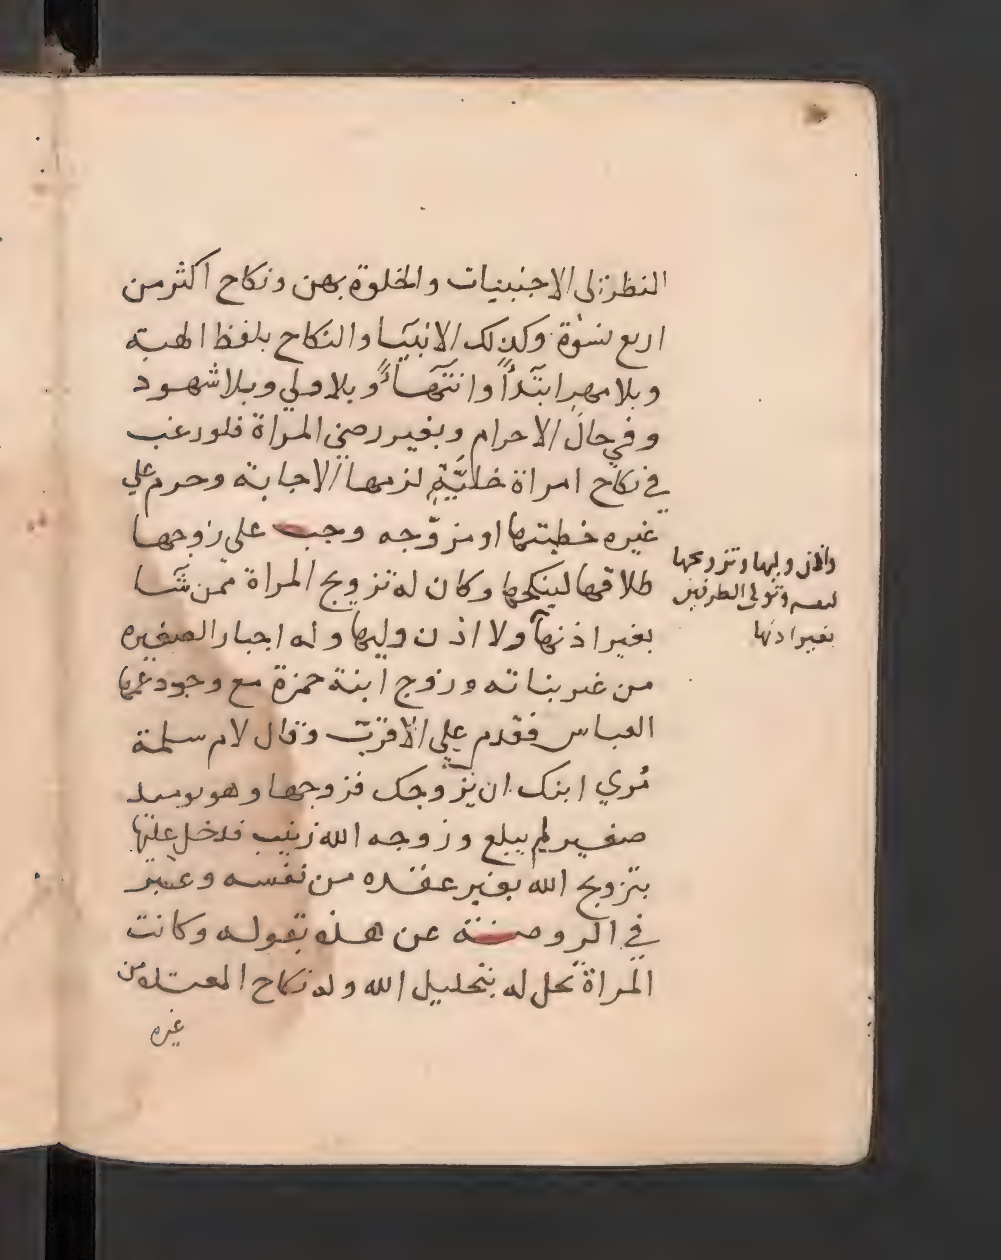 النظر الى الاجنبيات والخلوة بهن ونكاح اكثر من
اربع نسوة وكذلك الانبيآ والنكاح بلفظ الهبة
وبلا مهر ابتدآً وانتهآءً وبلا ولي وبلا شهود
وفي حال الاحرام وبغير رضى المراة فلو رغب
في نكاح امراة خليّة لزمها الاجابة وحرم علي
غيره خطبتها او مزوّجه وجب على زوجها
طلاقها لينكحها وكان له تزويج المراة ممّن شآ
بغير اذنها ولا اذن وليها وله اجبار الصغيره
من غير بناته وزوج ابنة حمزة مع وجود عمها
العباس فقدم علي الاقرب وقال لام سلمة
مُري ابنك ان يزوجك فزوجها وهو يوميذ
صغير لم يبلغ وزوجه الله زينب فدخل عليها
بتزويج الله بغير عقده من نفسه وعبر
في الروضة عن هذه بقوله وكانت
المراة تحل له بتحليل الله وله نكاح المعتدة من
غيره
واذن وليها وتزويجها
لنفسه وتولي الطرفين
بغير اذنها